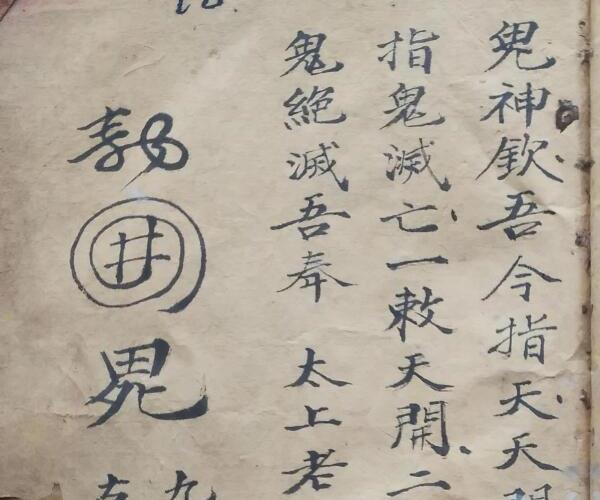 鬼神欽吾今指天天
指鬼滅亡一敕天開二
鬼絕滅吾奉 太上老
井
九